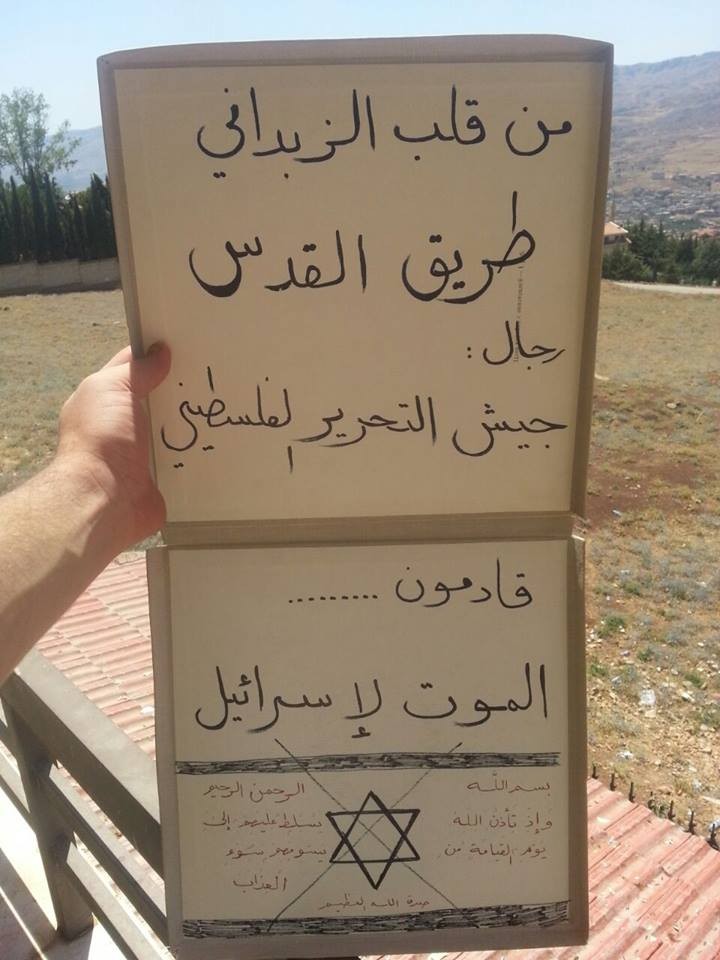 من قلب الزبداني
طريق القدس
رجال :
جيش التحرير لفلسطيني
قادمون .........
الموت لإسرائيل
بسم الله الرحمن الرحيم
وإذ تأذن الله يسلط عليهم إلى
يوم القيامة من يسومهم سوء
العذاب
صدق الله العظيم